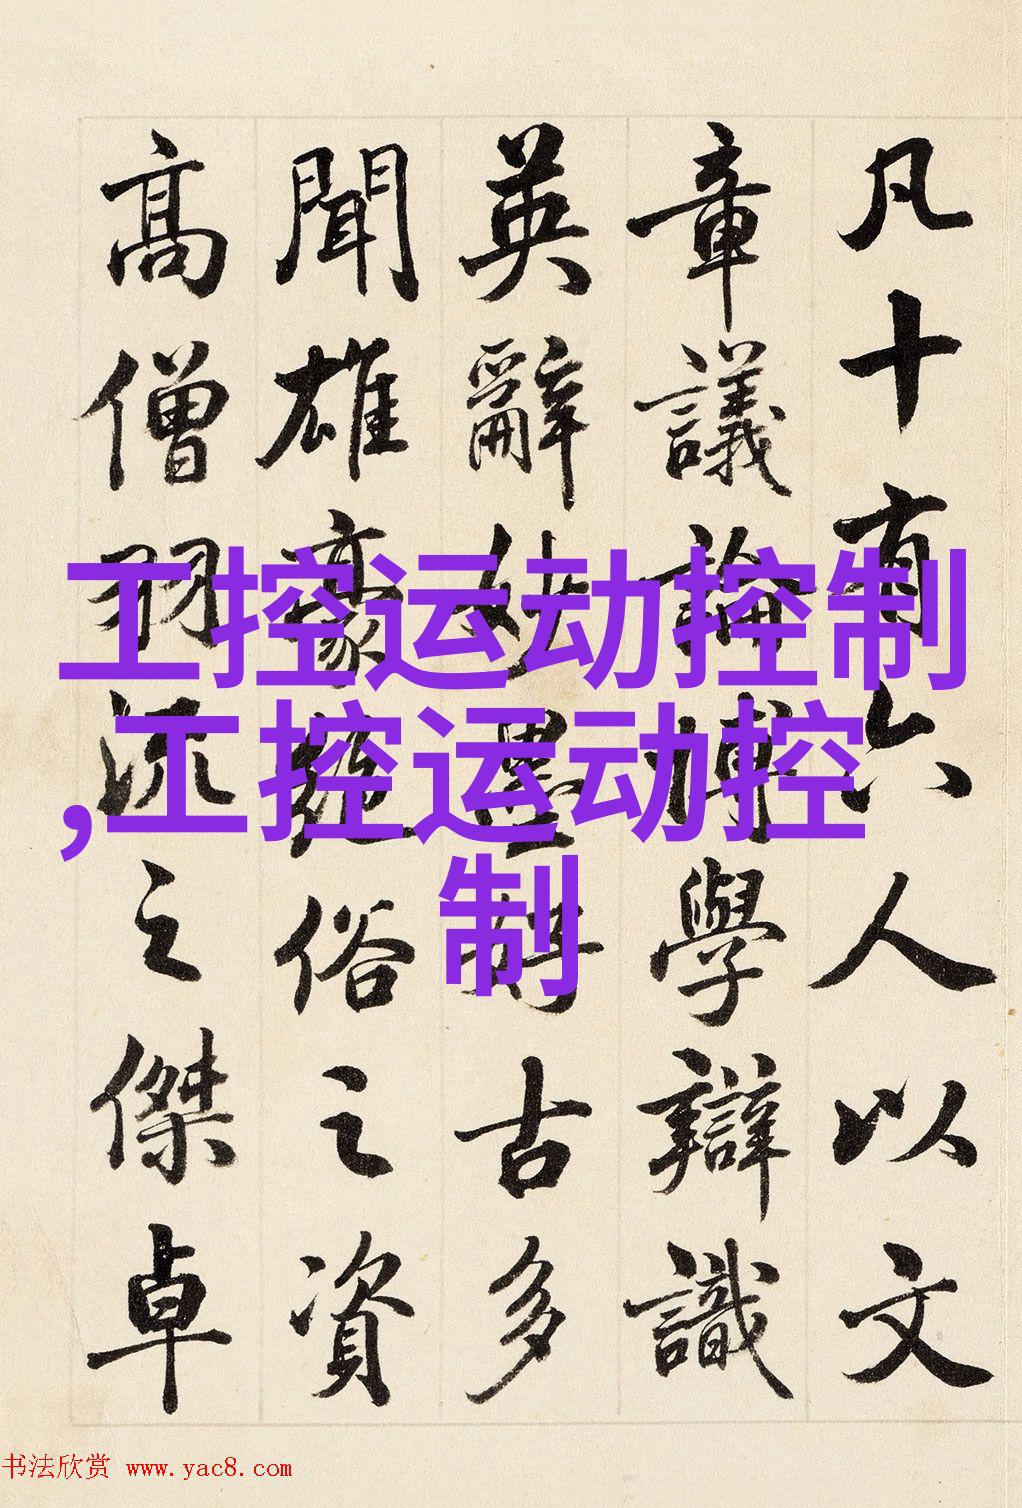 凡十有六人以文
章議論博學辯識
英辭妙墨好古多
聞雄豪絕俗之資
高僧羽流之傑卓
工控运动控制
,工控运动控
制
书法欣赏 www.yac8.com